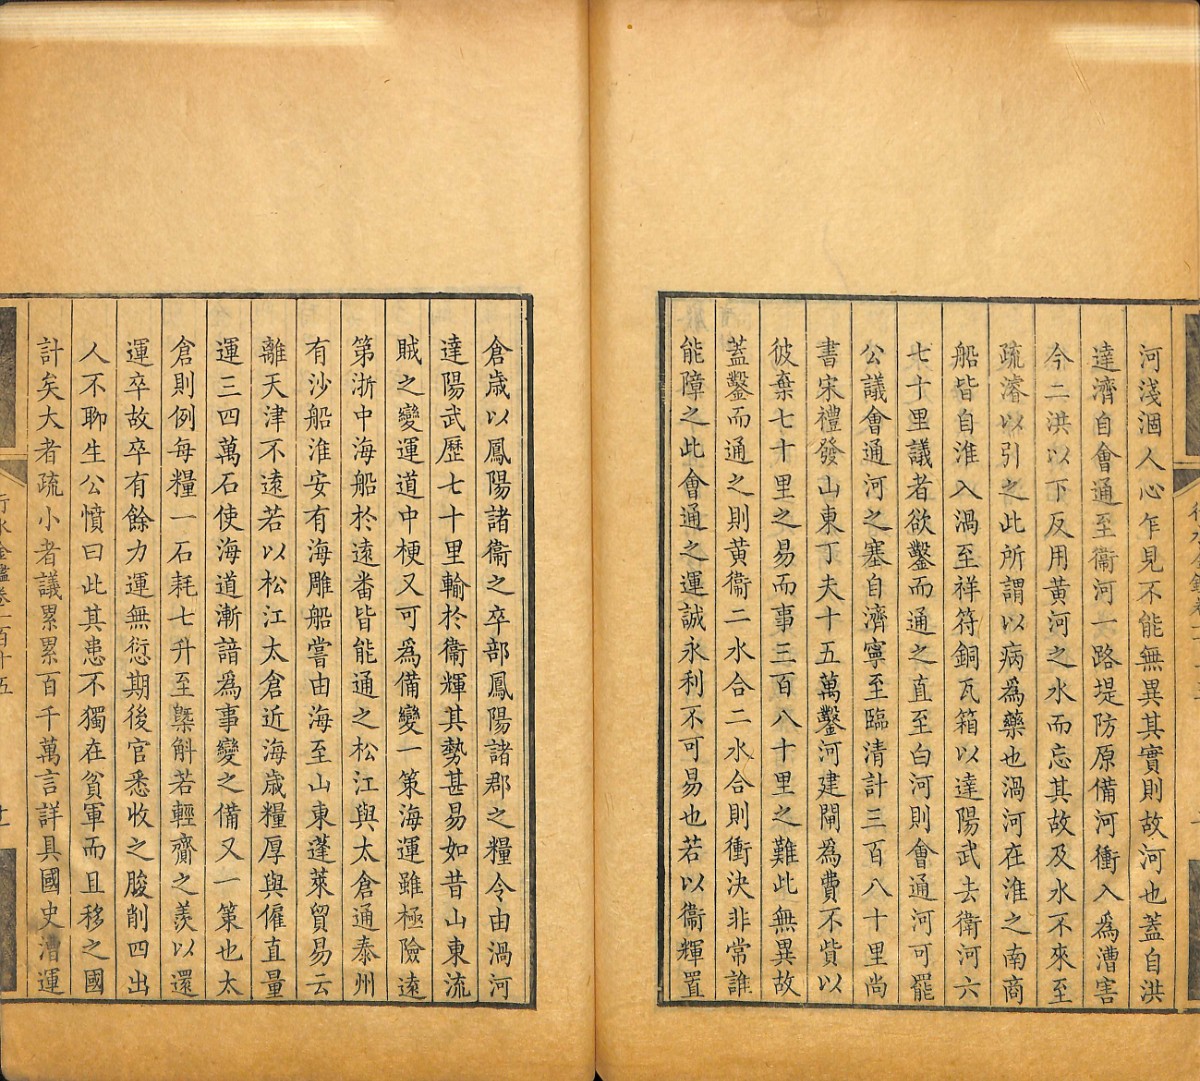 河淺涸人心乍見不能無異其實則故河也蓋自洪
達濟自會通至衞河一路堤防原備河衝入爲漕害
今二洪以下反用黃河之水而忘其故及水不來至
疏濬以引之此所謂以病爲藥也渦河在淮之南商
船皆自淮入渦至祥符銅瓦箱以達陽武去衛河六
七十里議者欲鑿而通之直至白河則會通河可罷
公議會通河之塞自濟寧至臨清計三百八十里尚
書宋禮發山東丁夫十五萬鑿河建閘爲費不貲以
彼棄七十里之易而事三百八十里之難此無異故
蓋鑿而通之則黃衞二水合二水合則衝決非常誰
能障之此會通之運誠永利不可易也若以衞輝置
倉歲以鳳陽諸衞之卒部鳳陽諸郡之糧令由渦河
達陽武歷七十里輸於衞輝其勢甚易如昔山東流
賊之變運道中梗又可爲備變一策海運雖極險遠
第浙中海船於遠番皆能通之松江與太倉通泰州
有沙船淮安有海雕船嘗由海至山東蓬萊貿易云
離天津不遠若以松江太倉近海歲糧厚與僱直量
運三四萬石使海道漸諳爲事變之備又一策也太
倉則例每糧一石耗七升至槩斛若輕齎之羨以還
運卒故卒有餘力運無愆期後官悉收之朘削四出
人不聊生公憤曰此其患不獨在貧軍而且移之國
計矣大者疏小者議累累百千萬言詳具國史漕運
行水金鑑卷一百十五